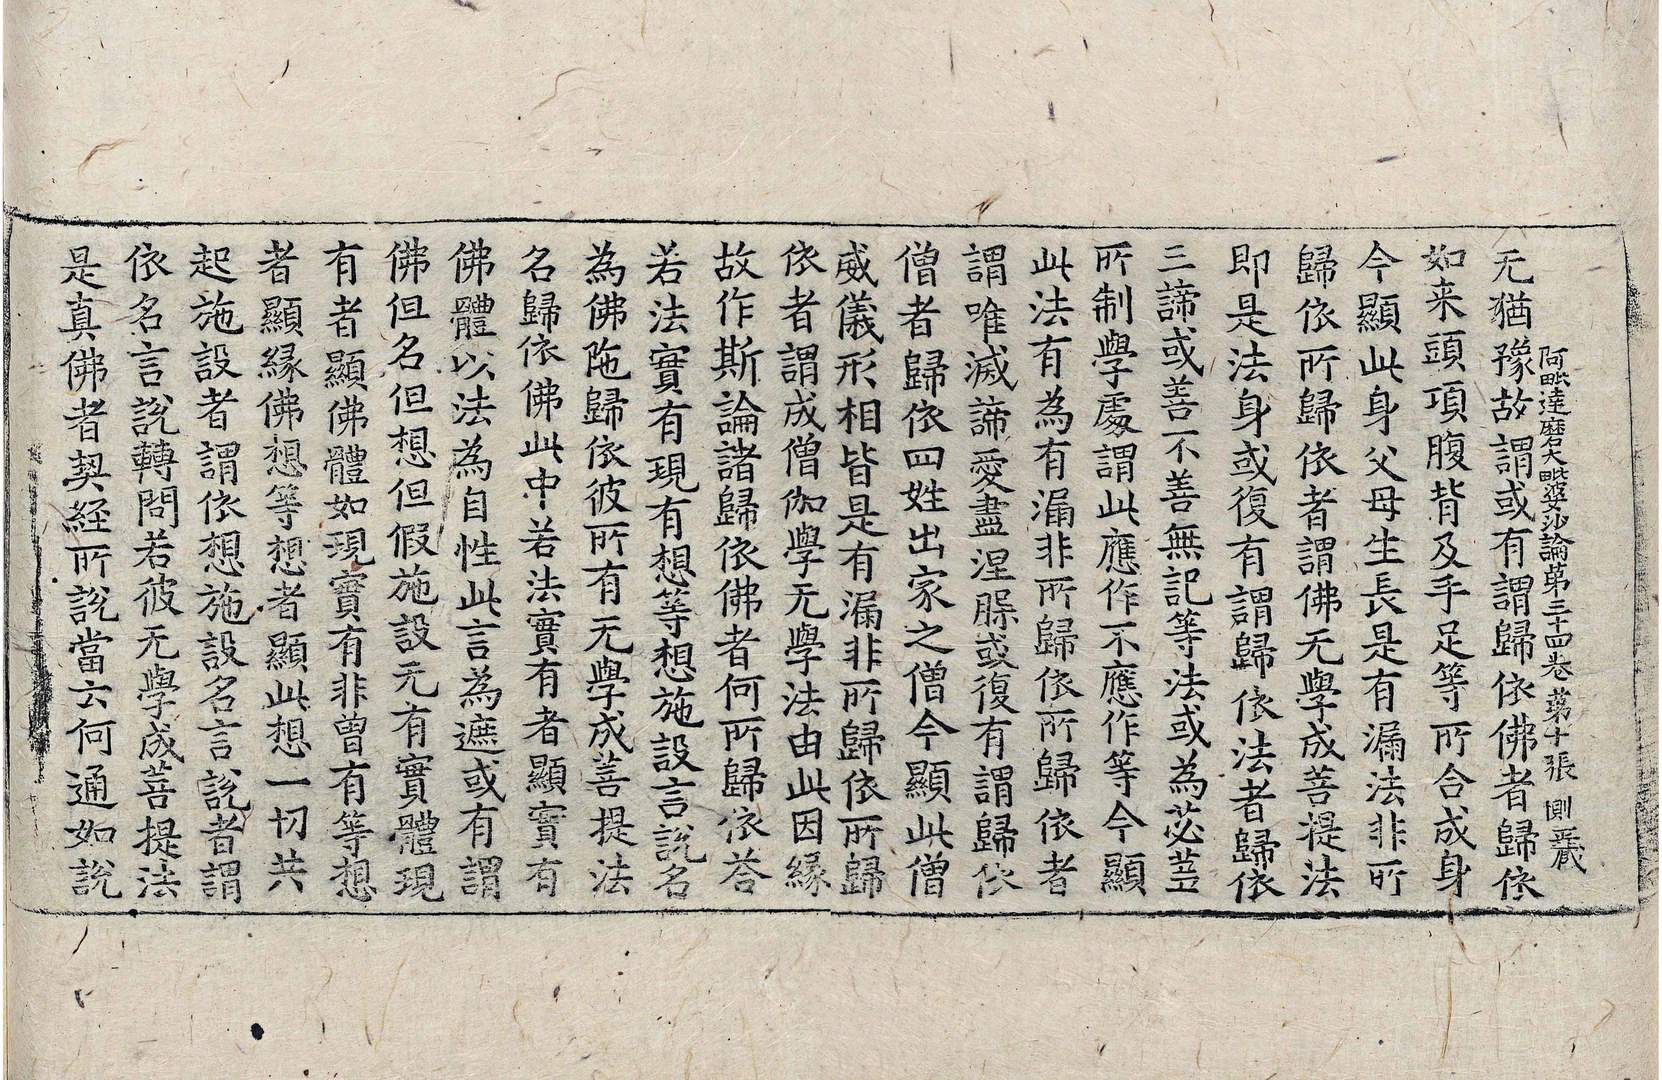 阿毗達磨大毗婆沙論第三十四卷 第十張 惻
无猶豫故謂或有謂歸依佛者歸依
如来頭項腹背及手足等所合成身
今顯此身父母生長是有漏法非所
歸依所歸依者謂佛无學成菩提法
即是法身或復有謂歸依法者歸依
三諦或善不善無記等法或為苾蒭
所制學處謂此應作不應作等今顯
此法有為有漏非所歸依所歸依者
謂唯滅諦愛盡涅槃或復有謂歸依
僧者歸依四姓出家之僧今顯此僧
威儀形相皆是有漏非所歸依所歸
依者謂成僧伽學无學法由此因緣
故作斯論諸歸依佛者何所歸依荅
若法實有現有想等想施設言說名
為佛陁歸依彼所有无學成菩提法
名歸依佛此中若法實有者顯實有
佛體以法為自性此言為遮或有謂
佛但名但想但假施設无有實體現
有者顯佛體如現實有非曾有等想
者顯緣佛想等想者顯此想一切共
起施設者謂依想施設名言說者謂
依名言說轉問若彼无學成菩提法
是真佛者契經所說當云何通如說